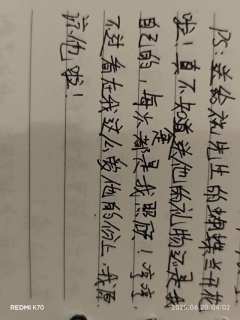 PS:送给沈先生的蝴蝶兰开花
啦!真不知道是送他的礼物还是我
自己的,每次都是我照顾!哼哼,
不过看在我这么爱他的份上,我原
谅他啦!
REDMI K70
2025.06.20 04:02